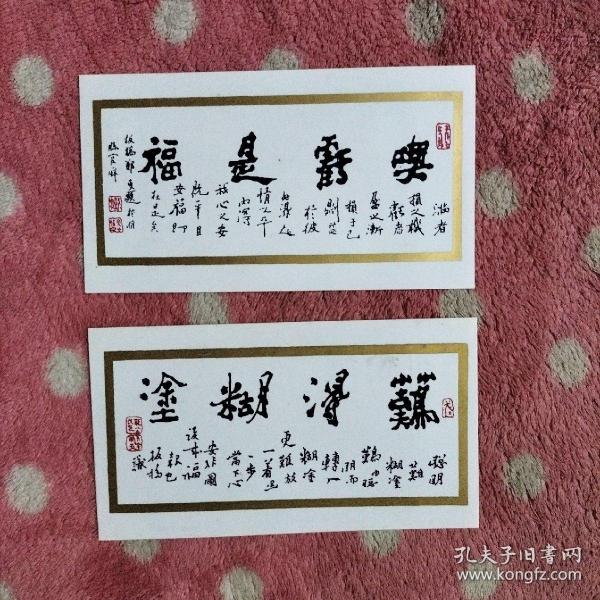 喫虧是福
滿者
損之機
虧者
盈之漸
損于己
則益
於彼
外得人
情之平
内得
我心之安
既平且
安福即
在是矣
板橋鄭燮題於
難得糊塗
聰明
難
糊塗
難由聰
明而
轉入
糊塗
更難放
一着退
一步
當下心
安非圖
後來福
報也
板橋
識
孔夫子旧书网
www.kongfz.com